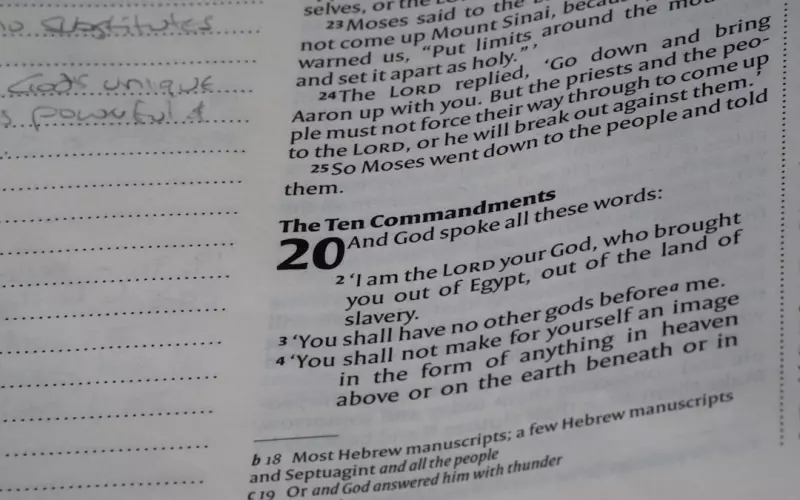 no substitutes
God's unique
s powerful &
selves, or the LORD
23 Moses said to the
not come up Mount Sinai, because
warned us, "Put limits around the
and set it apart as holy."'
24 The LORD replied, 'Go down and bring
Aaron up with you. But the priests and the peo-
ple must not force their way through to come up
to the LORD, or he will break out against them.'
25 So Moses went down to the people and told
them.
The Ten Commandments
20 And God spoke all these words:
2 'I am the LORD your God, who brought
you out of Egypt, out of the land of
slavery.
3 'You shall have no other gods before a me.
4 'You shall not make for yourself an image
in the form of anything in heaven
above or on the earth beneath or in
b 18 Most Hebrew manuscripts; a few Hebrew manuscripts
and Septuagint and all the people
c 19 Or and God answered him with thunder